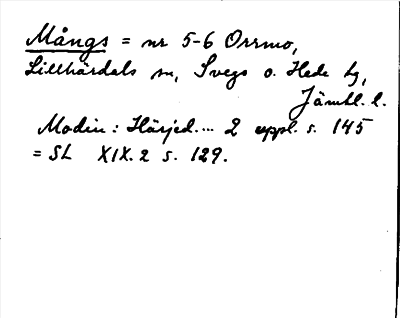 Mångs = nr 5-6 Orrmo,
Lillhärdals sn, Svegs o. Hede tg,
Jämtl. l.
Modin: Härjed.... 2 uppl. s. 145
= SL XIX.2 s. 129.